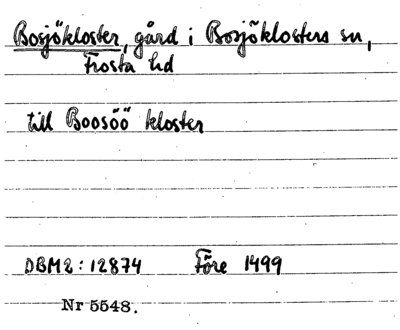 Bosjökloster, gård i Bosjöklosters sn,
Frosta hd
till Boosöö kloster
DBM2:12874 Före 1499
Nr 5548.